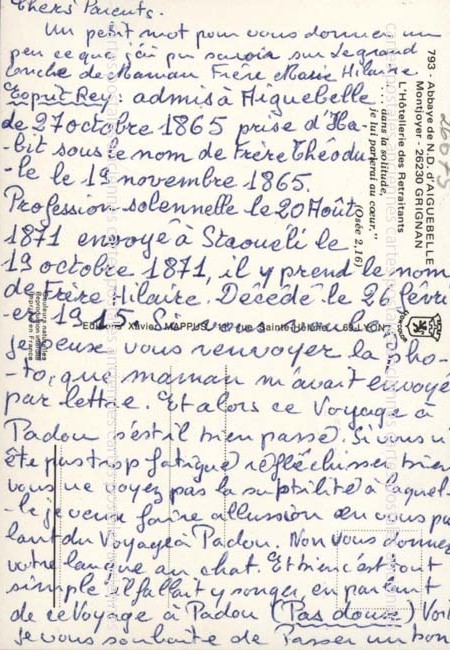 Chers Parents.
Un petit mot pour vous donner un
peu ce que j'ai pu savoir sur le grand
oncle de Maman Frère Marie Hilaire
Esprit Rey : admis à Aiguebelle
de 27 octobre 1865 prise d'Ha-
-bit sous le nom de Frère Théodu-
-le le 19 novembre 1865.
Profession solennelle le 20 Août
1871 envoyé à Staouëli le
19 octobre 1871, il y prend le nom
de Frère Hilaire. Décédé le 26 févri
-er 1915. Si vous voulez
je peux vous renvoyer la pho-
-to, que maman m'avait envoyé
par lettre. Et alors ce Voyage à
Padou s'est il bien passé. Si vous n'
ête pas trop fatigué réflèchisser bien
vous ne voyez pas la suptilité à laquel-
-le je veux faire allussion en vous par
lant du Voyage à Padou. Non vous donnez
votre langue au chat. Et bien c'est tout
simple il fallait y songer, en parlant
de ce Voyage à Padou (Pas doux) Voi
je vous souhaite de Passer un bon
793 - Abbaye de N.D. d'AIGUEBELLE
Montjoyer - 26230 GRIGNAN
L'Hôtellerie des Retraitants
"... dans la solitude,
je lui parlerai au cœur,"
(Osée 2,16)
Editions Xavier MAPPUS, rue Sainte-Hélène - 69 LYON
Couleurs naturelles
Reproduction interdite
Imprimé en France